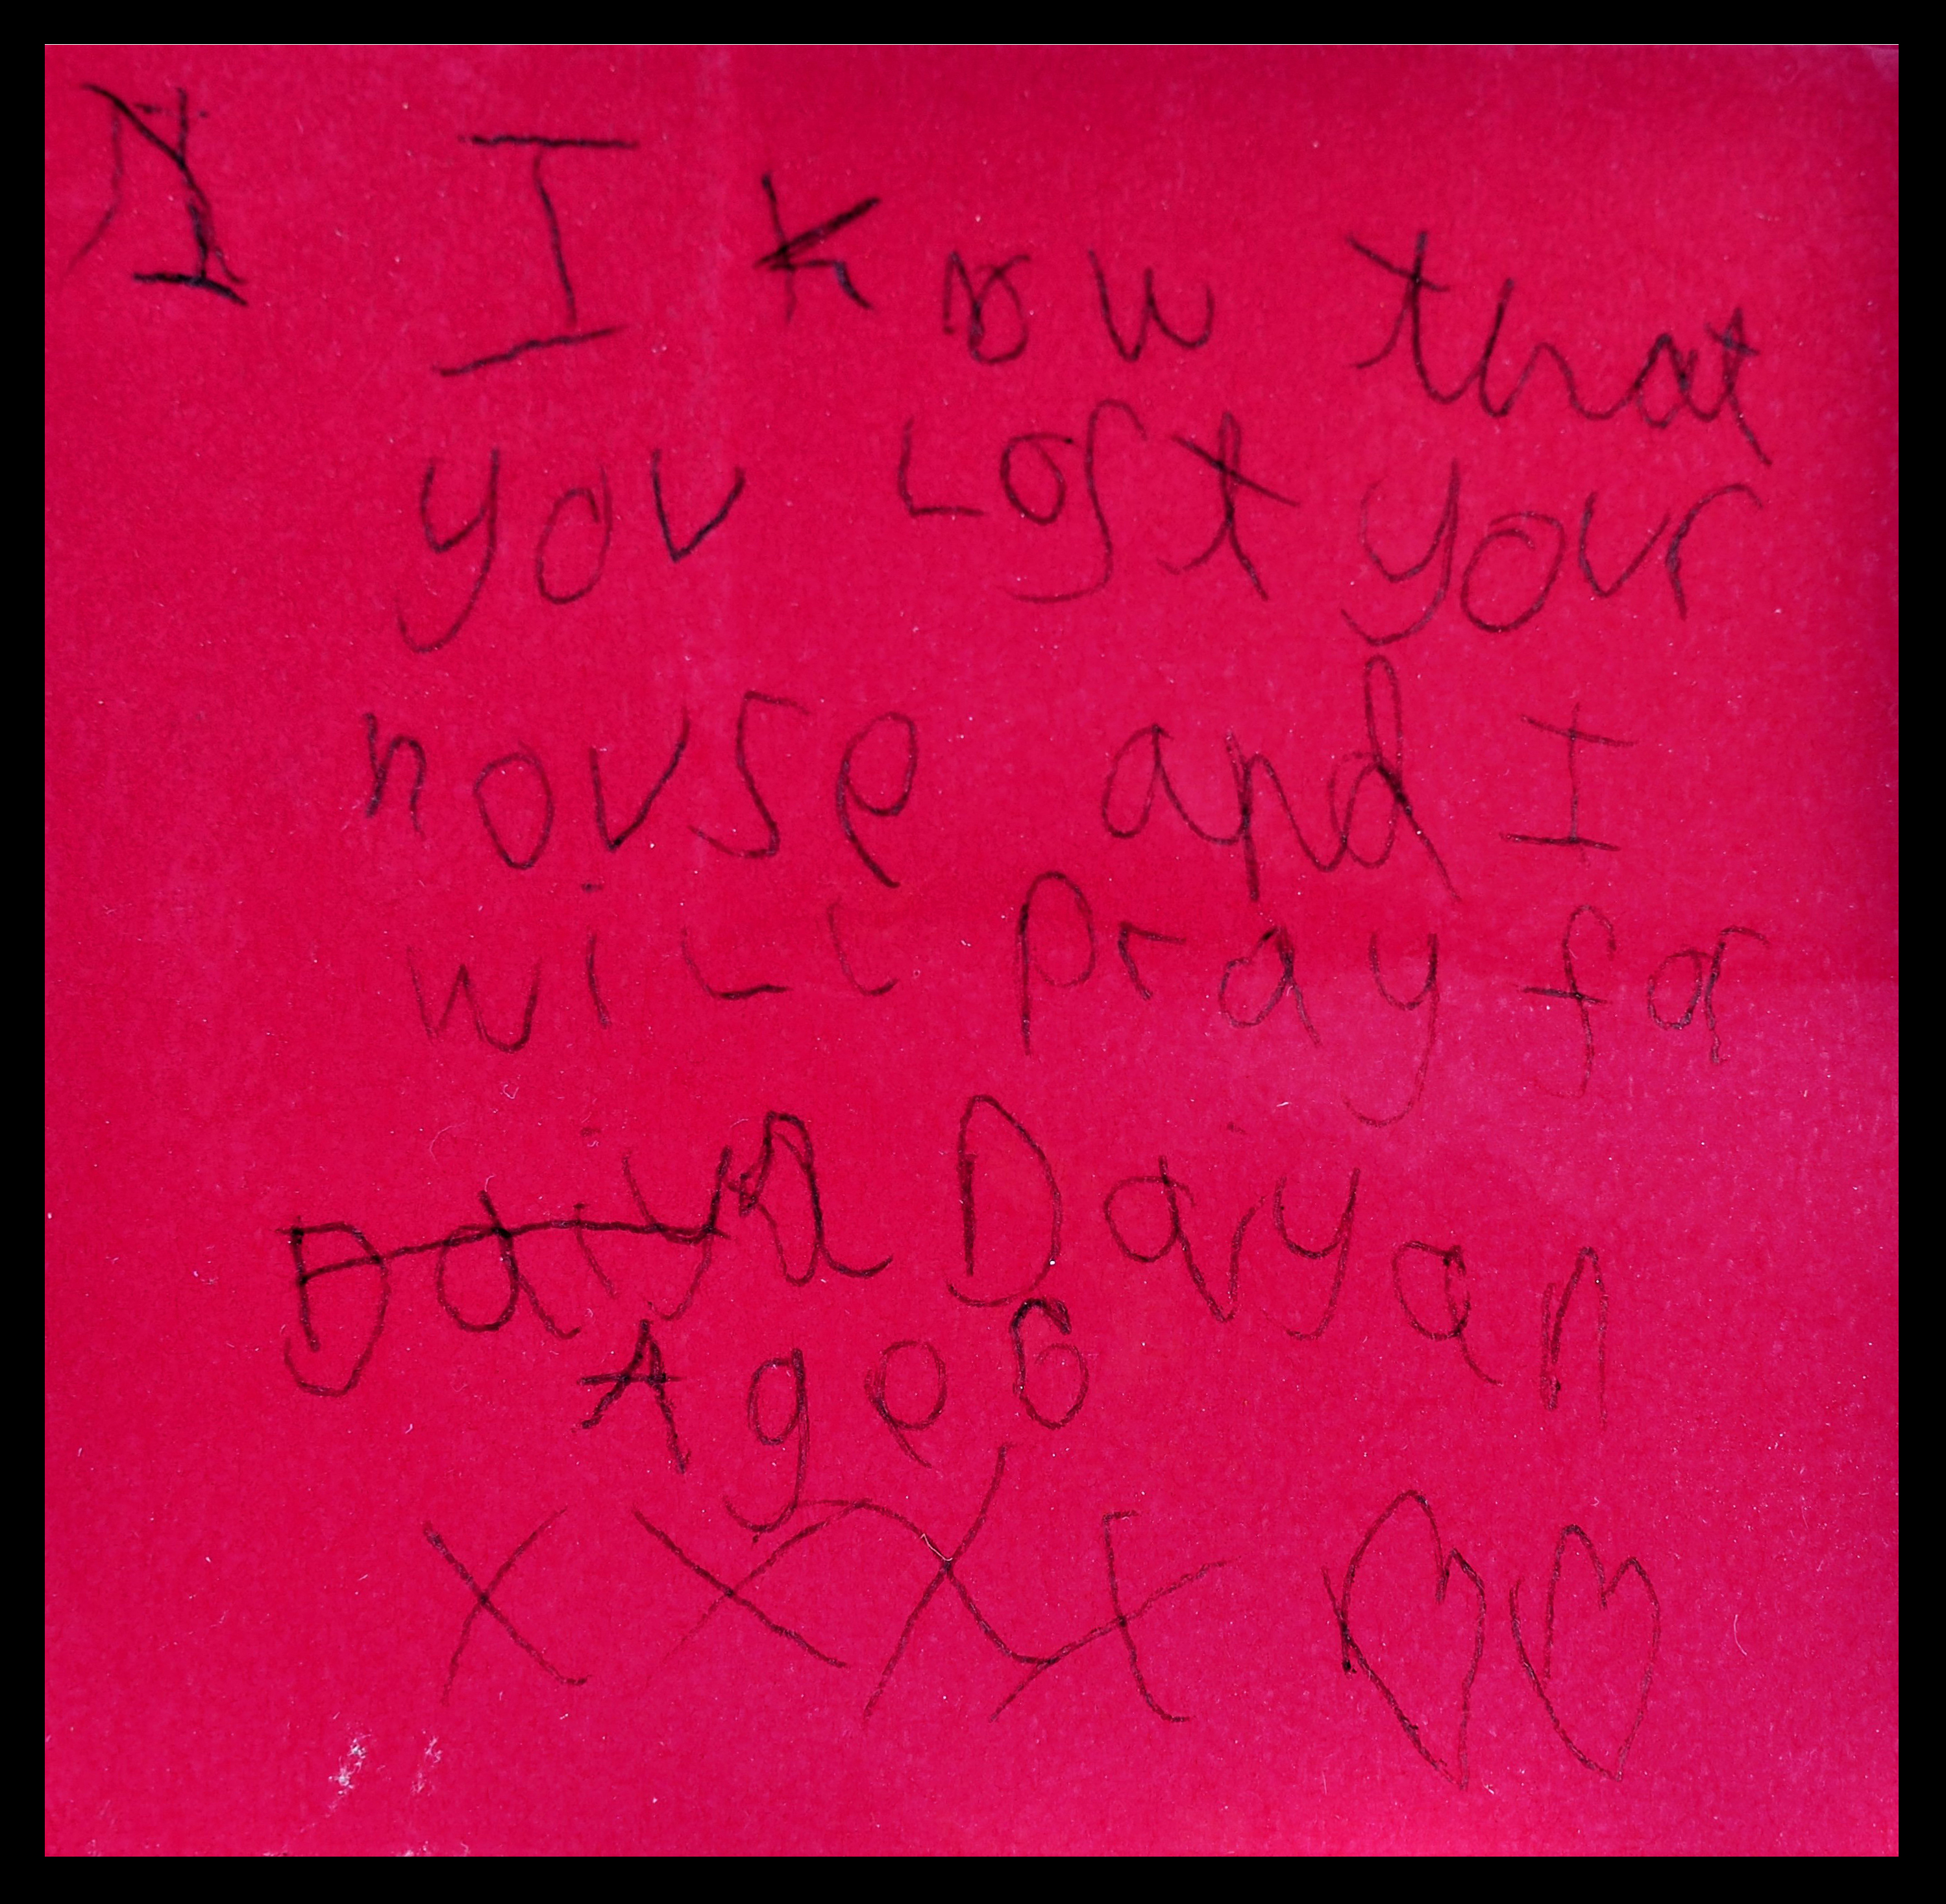 I know that
you Lost your
house and I
will pray for
Daiya Dayan
Age 6
X X X X